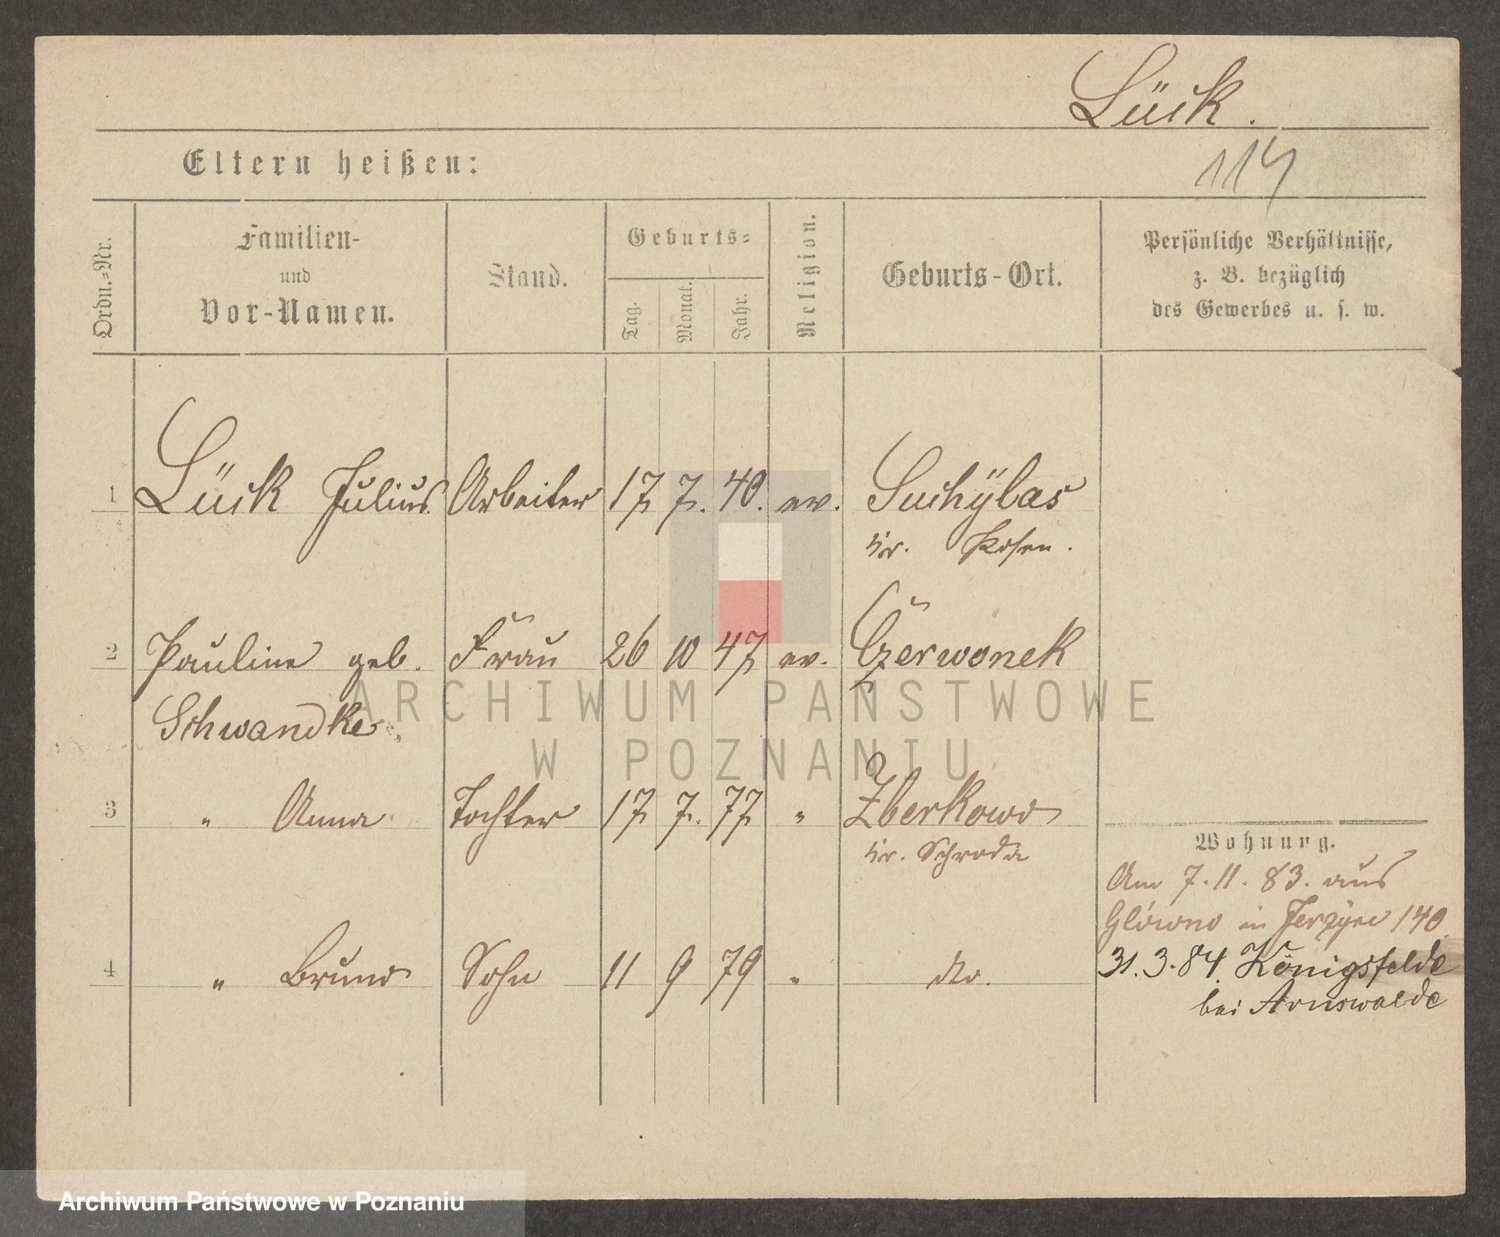 Lück.
Eltern heißen:
114
Ordn.-Nr.
Familien-
und
Vor-Namen.
Stand.
Geburts-
Tag.
Monat.
Jahr.
Religion.
Geburts-Ort.
Persönliche Verhältnisse,
z. B. bezüglich
des Gewerbes u. s. w.
1 Lück Julius. Arbeiter 17 7. 40. ev. Suchÿlas
Kr. Posen.
2 Pauline geb. Frau 26 10 47 ev. Czerwonek
Schwandke.
ARCHIWUM PAŃSTWOWE
W POZNANIU
3 " Anna Tochter 17 7. 77 " Zberkowo
Kr. Schroda
Wohnung.
Am 7. 11. 83. aus
Glówno in Jerzyce 140
4 " Bruno Sohn 11 9 79 " do.
31. 3. 84. Königsfelde
bei Arnswalde
Archiwum Państwowe w Poznaniu